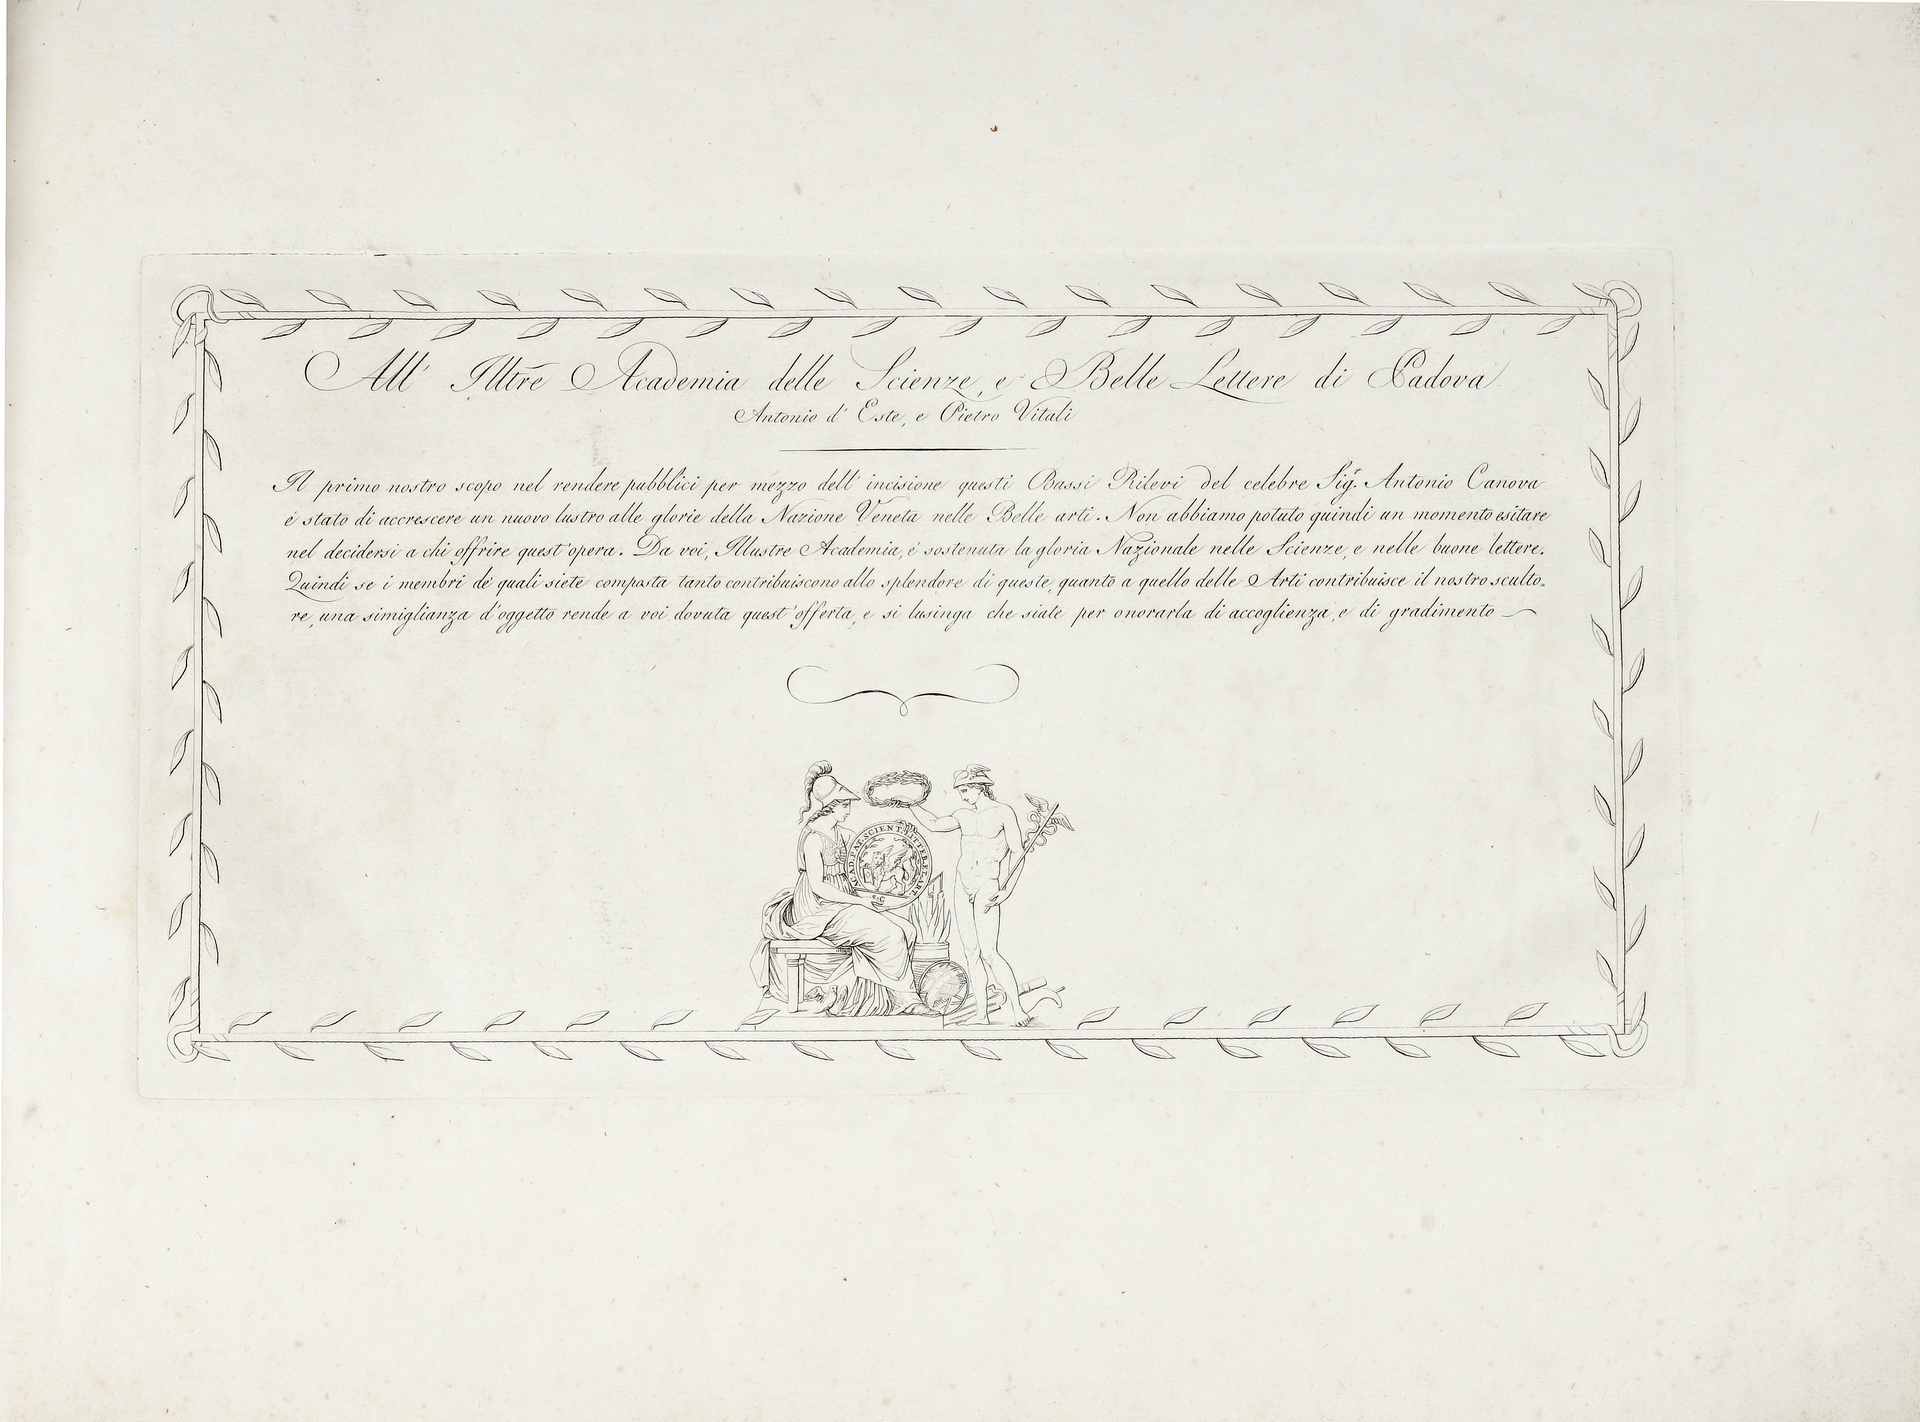 All' Illtre Academia delle Scienze, e Belle Lettere di Padova
Antonio d' Este, e Pietro Vitali
Il primo nostro scopo nel rendere pubblici per mezzo dell' incisione questi Bassi Rilevi del celebre Sigr. Antonio Canova
é stato di accrescere un nuovo lustro alle glorie della Nazione Veneta nelle Belle arti. Non abbiamo potuto quindi un momento esitare
nel decidersi a chi offrire quest'opera. Da voi, Illustre Academia, é sostenuta la gloria Nazionale nelle Scienze, e nelle buone lettere.
Quindi se i membri de' quali siete composta tanto contribuiscono allo splendore di queste, quanto a quello delle Arti contribuisce il nostro sculto=
re, una simiglianza d'oggetto rende a voi dovuta quest'offerta, e si lusinga che siate per onorarla di accoglienza, e di gradimento
ACAD. PAT. SCIENT. LITTER. ET. ART.
S.C